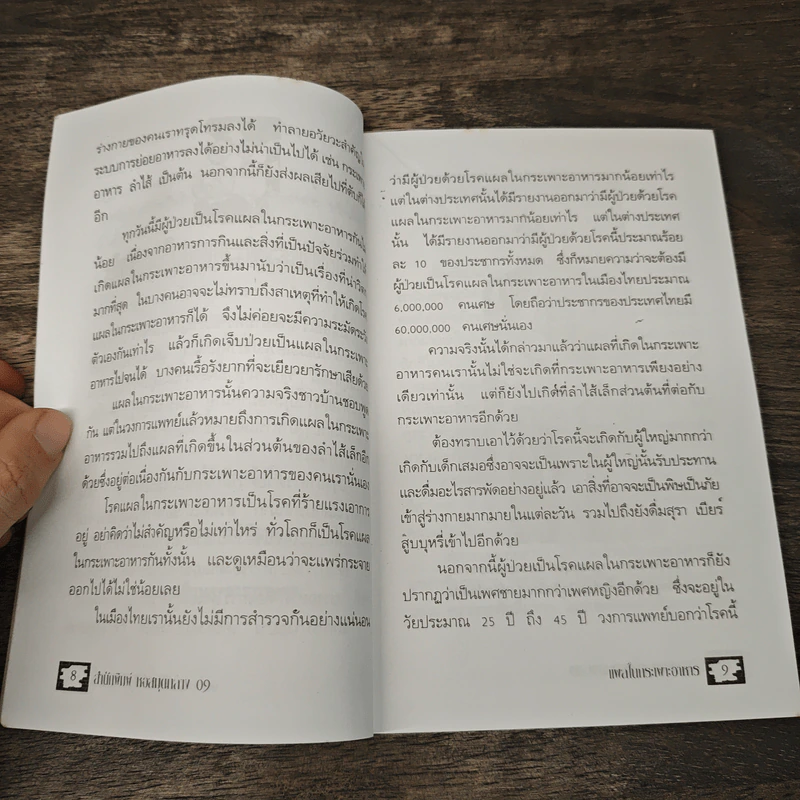 ร่างกายของคนเราทรุดโทรมลงได้ ทำลายอวัยวะสำคัญ
ระบบการย่อยอาหารลงได้อย่างไม่น่าเป็นไปได้ เช่น กระเพาะ
อาหาร ลำไส้ เป็นต้น นอกจากนี้ก็ยังส่งผลเสียไปที่ตับ
อีก
ทุกวันนี้มีผู้ป่วยเป็นโรคแผลในกระเพาะอาหารกัน
น้อย เนื่องจากอาหารการกินและสิ่งที่เป็นปัจจัยร่วมทำ
เกิดแผลในกระเพาะอาหารขึ้นมานับว่าเป็นเรื่องที่น่า
มากที่สุด ในบางคนอาจจะไม่ทราบถึงสาเหตุที่ทำให้เกิด
แผลในกระเพาะอาหารก็ได้ จึงไม่ค่อยจะมีความระมัดระวัง
ตัวเองกันเท่าไร แล้วก็เกิดเจ็บป่วยเป็นแผลในกระเพาะ
อาหารไปจนได้ บางคนเรื้อรังยากที่จะเยียวยารักษาเสียด้วย
แผลในกระเพาะอาหารนั้นความจริงชาวบ้านชอบพูด
กัน แต่ในวงการแพทย์แล้วหมายถึงการเกิดแผลในกระเพาะ
อาหารรวมไปถึงแผลที่เกิดขึ้นในส่วนต้นของลำไส้เล็กอีก
ด้วยซึ่งอยู่ต่อเนื่องกันกับกระเพาะอาหารของคนเรานั่นเอง
โรคแผลในกระเพาะอาหารเป็นโรคที่ร้ายแรงเอาการ
อยู่ อย่าคิดว่าไม่สำคัญหรือไม่เท่าไหร่ ทั่วโลกก็เป็นโรคแผล
ในกระเพาะอาหารกันทั้งนั้น และดูเหมือนว่าจะแพร่กระจาย
ออกไปได้ไม่ใช่น้อยเลย
ในเมืองไทยเรานั้นยังไม่มีการสำรวจกันอย่างแน่นอน
8 สำนักพิมพ์ หอสมุดกลาง 09
ว่ามีผู้ป่วยด้วยโรคแผลในกระเพาะอาหารมากน้อยเท่าไร
แต่ในต่างประเทศนั้นได้มีรายงานออกมาว่ามีผู้ป่วยด้วยโรค
แผลในกระเพาะอาหารมากน้อยเท่าไร แต่ในต่างประเทศ
นั้น ได้มีรายงานออกมาว่ามีผู้ป่วยด้วยโรคนี้ประมาณร้อย
ละ 10 ของประชากรทั้งหมด ซึ่งก็หมายความว่าจะต้องมี
ผู้ป่วยเป็นโรคแผลในกระเพาะอาหารในเมืองไทยประมาณ
6,000,000 คนเศษ โดยถือว่าประชากรของประเทศไทยมี
60,000,000 คนเศษนั่นเอง
ความจริงนั้นได้กล่าวมาแล้วว่าแผลที่เกิดในกระเพาะ
อาหารคนเรานั้นไม่ใช่จะเกิดที่กระเพาะอาหารเพียงอย่าง
เดียวเท่านั้น แต่ก็ยังไปเกิดที่ลำไส้เล็กส่วนต้นที่ต่อกับ
กระเพาะอาหารอีกด้วย
ต้องทราบเอาไว้ด้วยว่าโรคนี้จะเกิดกับผู้ใหญ่มากกว่า
เกิดกับเด็กเสมอซึ่งอาจจะเป็นเพราะในผู้ใหญ่นั้นรับประทาน
และดื่มอะไรสารพัดอย่างอยู่แล้ว เอาสิ่งที่อาจจะเป็นพิษเป็นภัย
เข้าสู่ร่างกายมากมายในแต่ละวัน รวมไปถึงยังดื่มสุรา เบียร์
สูบบุหรี่เข้าไปอีกด้วย
นอกจากนี้ผู้ป่วยเป็นโรคแผลในกระเพาะอาหารก็ยัง
ปรากฏว่าเป็นเพศชายมากกว่าเพศหญิงอีกด้วย ซึ่งจะอยู่ใน
วัยประมาณ 25 ปี ถึง 45 ปี วงการแพทย์บอกว่าโรคนี้
แผลในกระเพาะอาหาร 9